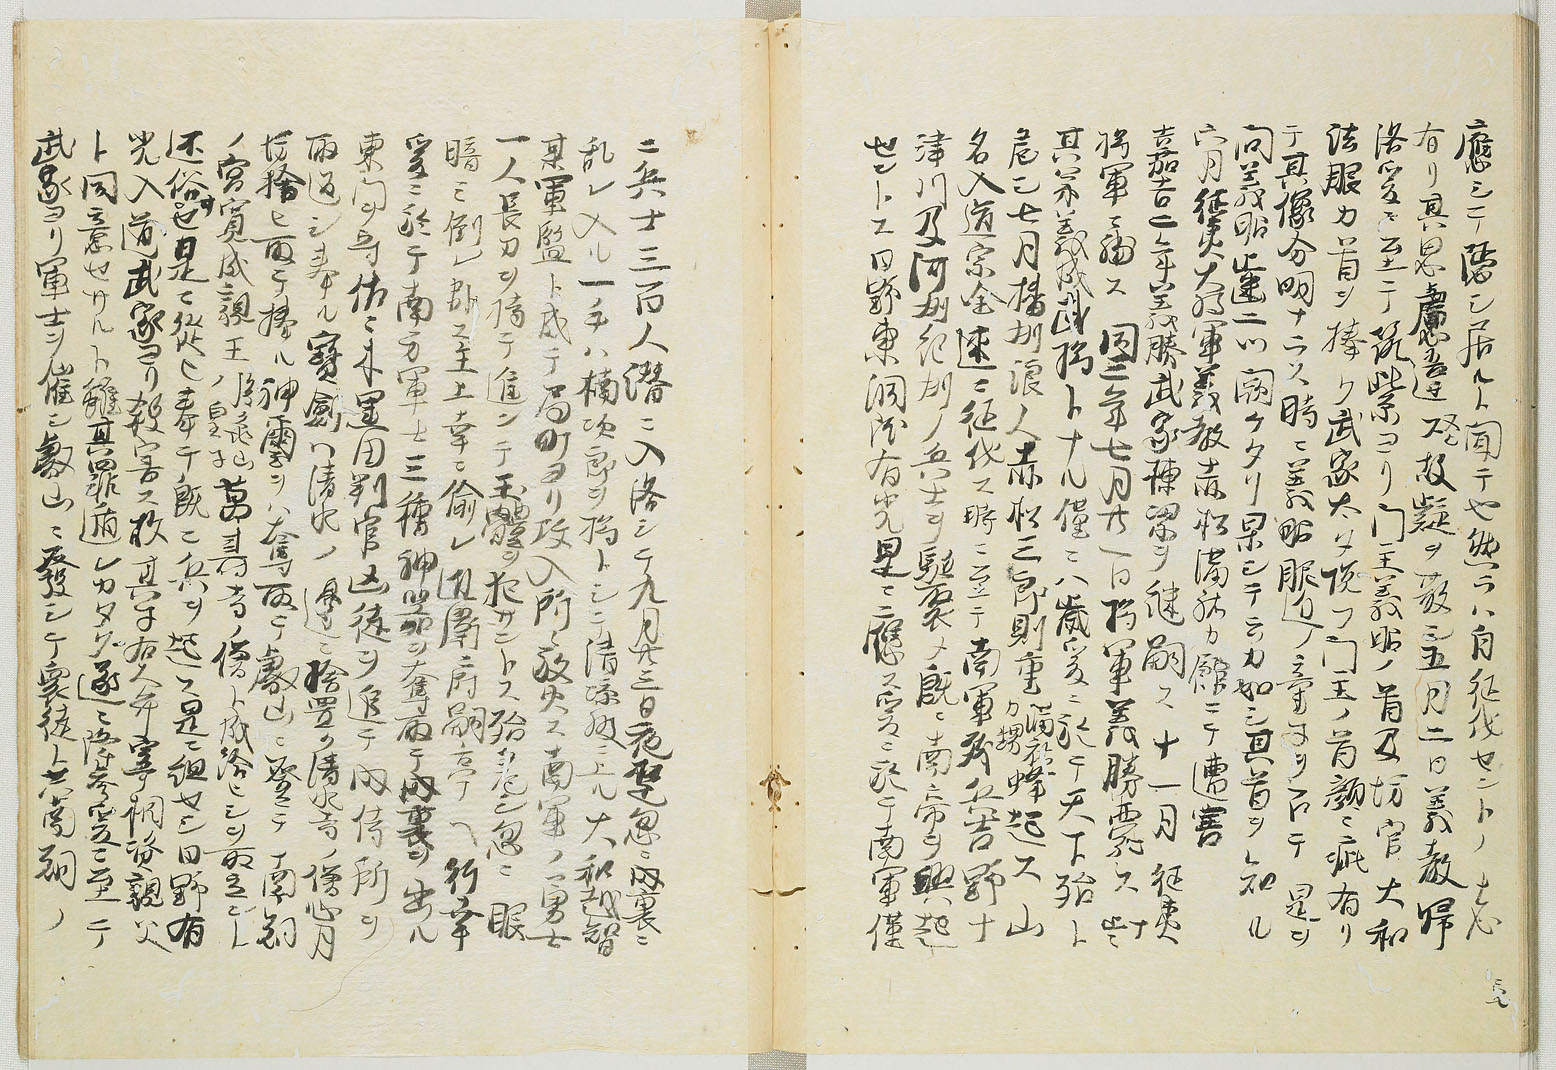 應シテ隱シ居ルト聞テや然ラハ自征伐セントノ志
有リ其思慮吾運不全故疑ヲ散ニ五月二日義教歸
洛爰ニ至テ筑紫ヨリ門主義昭ノ首及坊官大和
法服カ首ヲ捧ク武家大ニ悦フ門主ノ首顔ニ疵有リ
テ其像分明ナラス時ニ義昭眼近ノ童子ヲ召テ是ヲ
問義昭歯二ツ闕ケタリ果シテ言カ如シ其首ヲ知ル
六月征夷大将軍義教赤松滿祐カ館ニテ遭害
嘉吉二年義勝武家棟梁ヲ継嗣ス十一月征夷
将軍ニ補ス 同三年七月廿一日将軍義勝薨ス此ニ
其弟義成武将ト十ル僅ニ八歳爰ニ於テ天下殆ト
危シ七月播州浪人赤松三郎則重滿祐カ甥蜂起ス山
名入道宗全速ニ征伐ス時ニ至テ南軍残兵吉野十
津川及河州紀州ノ兵士ヲ駈聚メ既ニ南帝ヲ興起
セントス日野東洞院有光是ニ應ス爰ニ於テ南軍僅
ニ兵士三百人潜ニ入洛シテ九月廿三日夜墍忽ニ内裏ニ
乱レ入ル一手ハ楠次郎ヲ将トシニ清涼殿ニ上ル大和越智
某軍監ト成テ局町ヨリ攻入所々放火ス南軍ノ勇士
一人長刀ヲ揮テ進ンテ玉體ヲ犯サントス殆危シ忽ニ眼
暗ミ倒レ臥ス主上幸ニ偸レ近衛府嗣亭ヘ行幸
爰ニ於テ南方軍士三種神器ヲ奪取テ内裏ヲ出ル
東門ヲ守佐々木黒田判官凶徒ヲ追テ内侍所ヲ
取返シ奉ル寶劍ハ清水ノ邊ニ捨置ク清水寺ノ僧心月
坊拾ヒ取テ捧ル神璽ヲハ奪取テ叡山ニ登テ南朝
ノ宮寛成親王ノ皇子萬壽寺ノ僧ト成洛ヒシヲ取立ント
還俗サセ是ニ従ヒ奉テ既ニ兵ヲ起ス是ニ組セシ日野有
光入道武家ヨリ殺害ス故其子右大弁宰相資親父
ト同意セサルト雖其罪遁レカタク遂ニ降参爰ニ至テ
武家ヨリ軍士ヲ催シ叡山ニ發シテ衆徒ト共南朝ノ